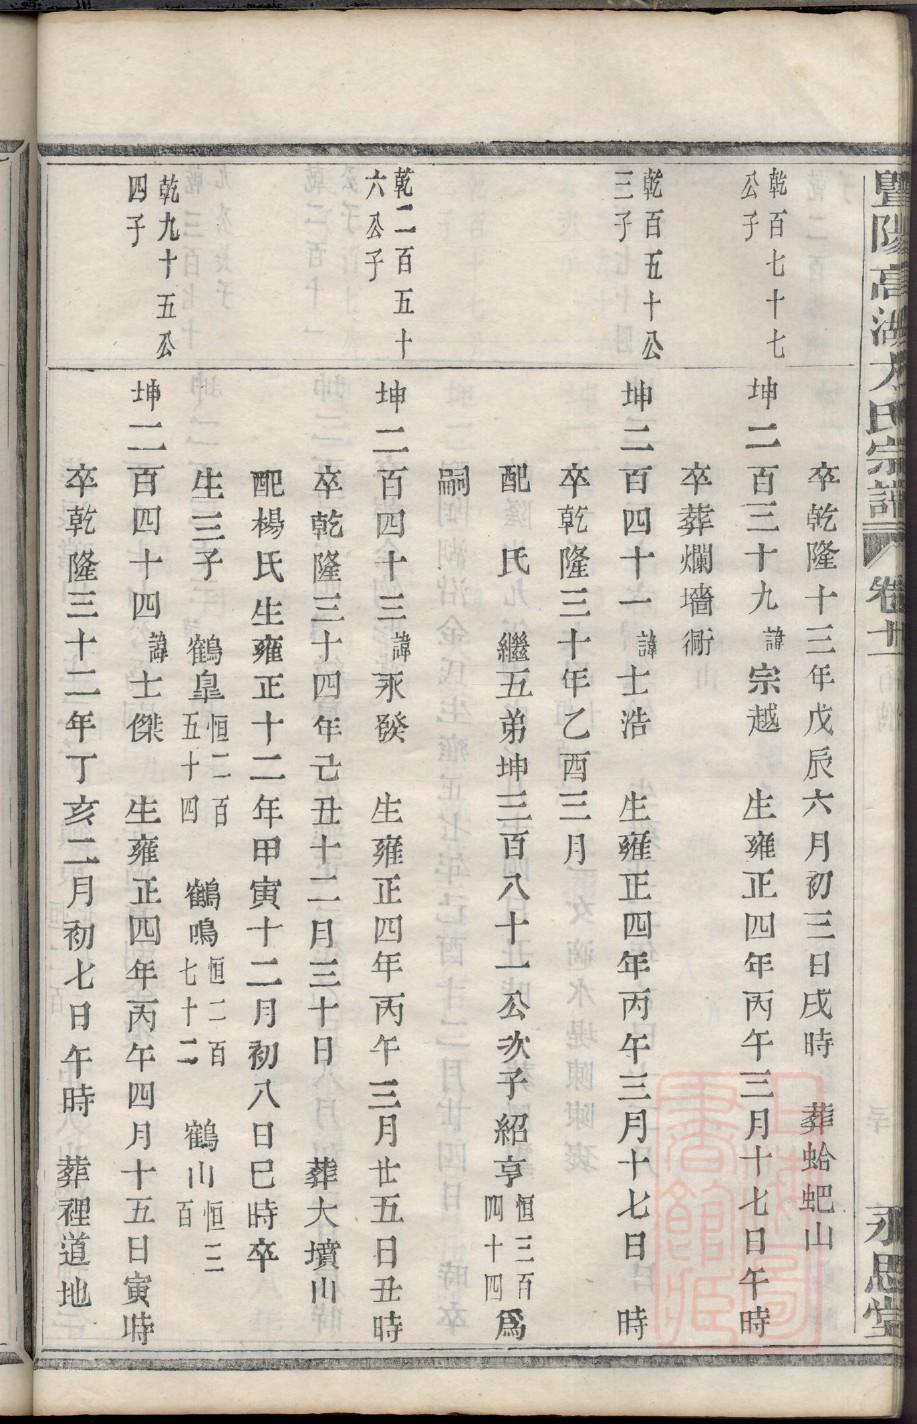 暨陽高湖方氏宗譜 卷廿一
永思堂
卒乾隆十三年戊辰六月初三日戌時 葬蛤蚆山
乾百七十七
公子
坤二百三十九諱宗越 生雍正四年丙午三月十七日午時
卒葬爛墻衕
乾百五十公
三子
坤二百四十一諱士浩 生雍正四年丙午三月十七日 時
卒乾隆三十年乙酉三月
配 氏 繼五弟坤三百八十一公次子紹亨恒三百四十四爲
嗣
乾二百五十
六公子
坤二百四十三諱永發 生雍正四年丙午三月廿五日丑時
卒乾隆三十四年己丑十二月三十日 葬大墳山
配楊氏生雍正十二年甲寅十二月初八日巳時卒
生三子 鶴皐恒二百五十四 鶴鳴恒二百七十二 鶴山恒三百
乾九十五公
四子
坤二百四十四諱士傑 生雍正四年丙午四月十五日寅時
卒乾隆三十二年丁亥二月初七日午時 葬裡道地